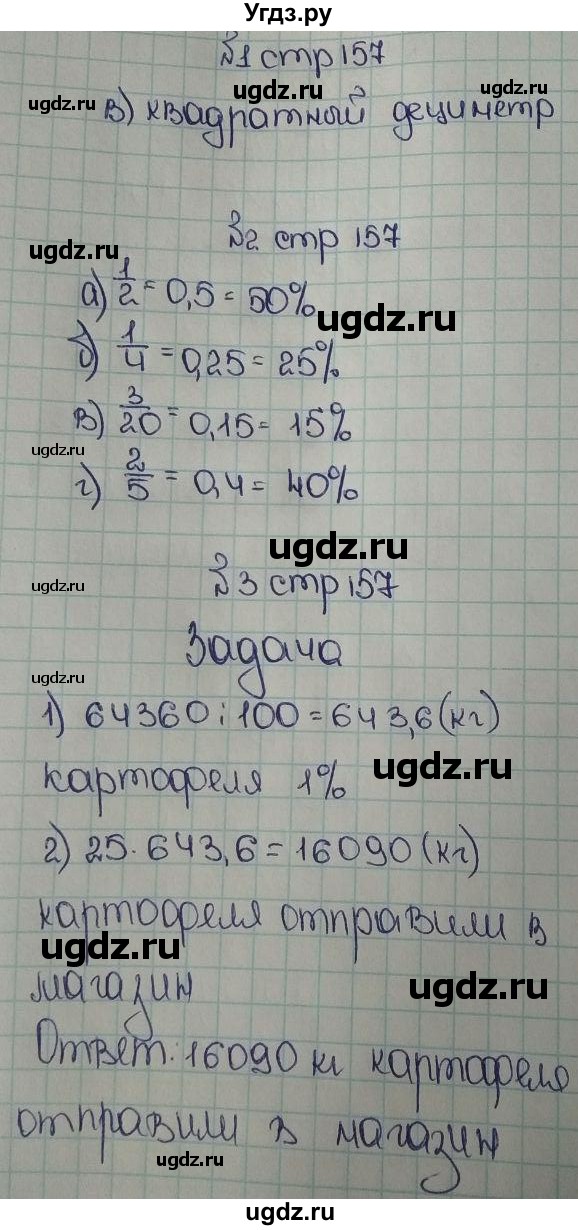 Угдз.ру
№1 стр 157
ugdz.ru ugdz.ru ugdz.ru
в) квадратный дециметр
№2 стр 157
ugdz.ru ugdz.ru
а) 1/2 = 0,5 = 50%
ugdz.ru
б) 1/4 = 0,25 = 25%
в) 3/20 = 0,15 = 15%
ugdz.ru
г) 2/5 = 0,4 = 40%
ugdz.ru
№3 стр 157
ugdz.ru
Задача
ugdz.ru
1) 64360 : 100 = 643,6 (кг)
ugdz.ru
картофеля 1%
2) 25 · 643,6 = 16090 (кг)
картофеля отправили в
ugdz.ru
магазин
ugdz.ru
Ответ: 16090 кг картофеля
отправили в магазин
ugdz.ru
ugdz.ru